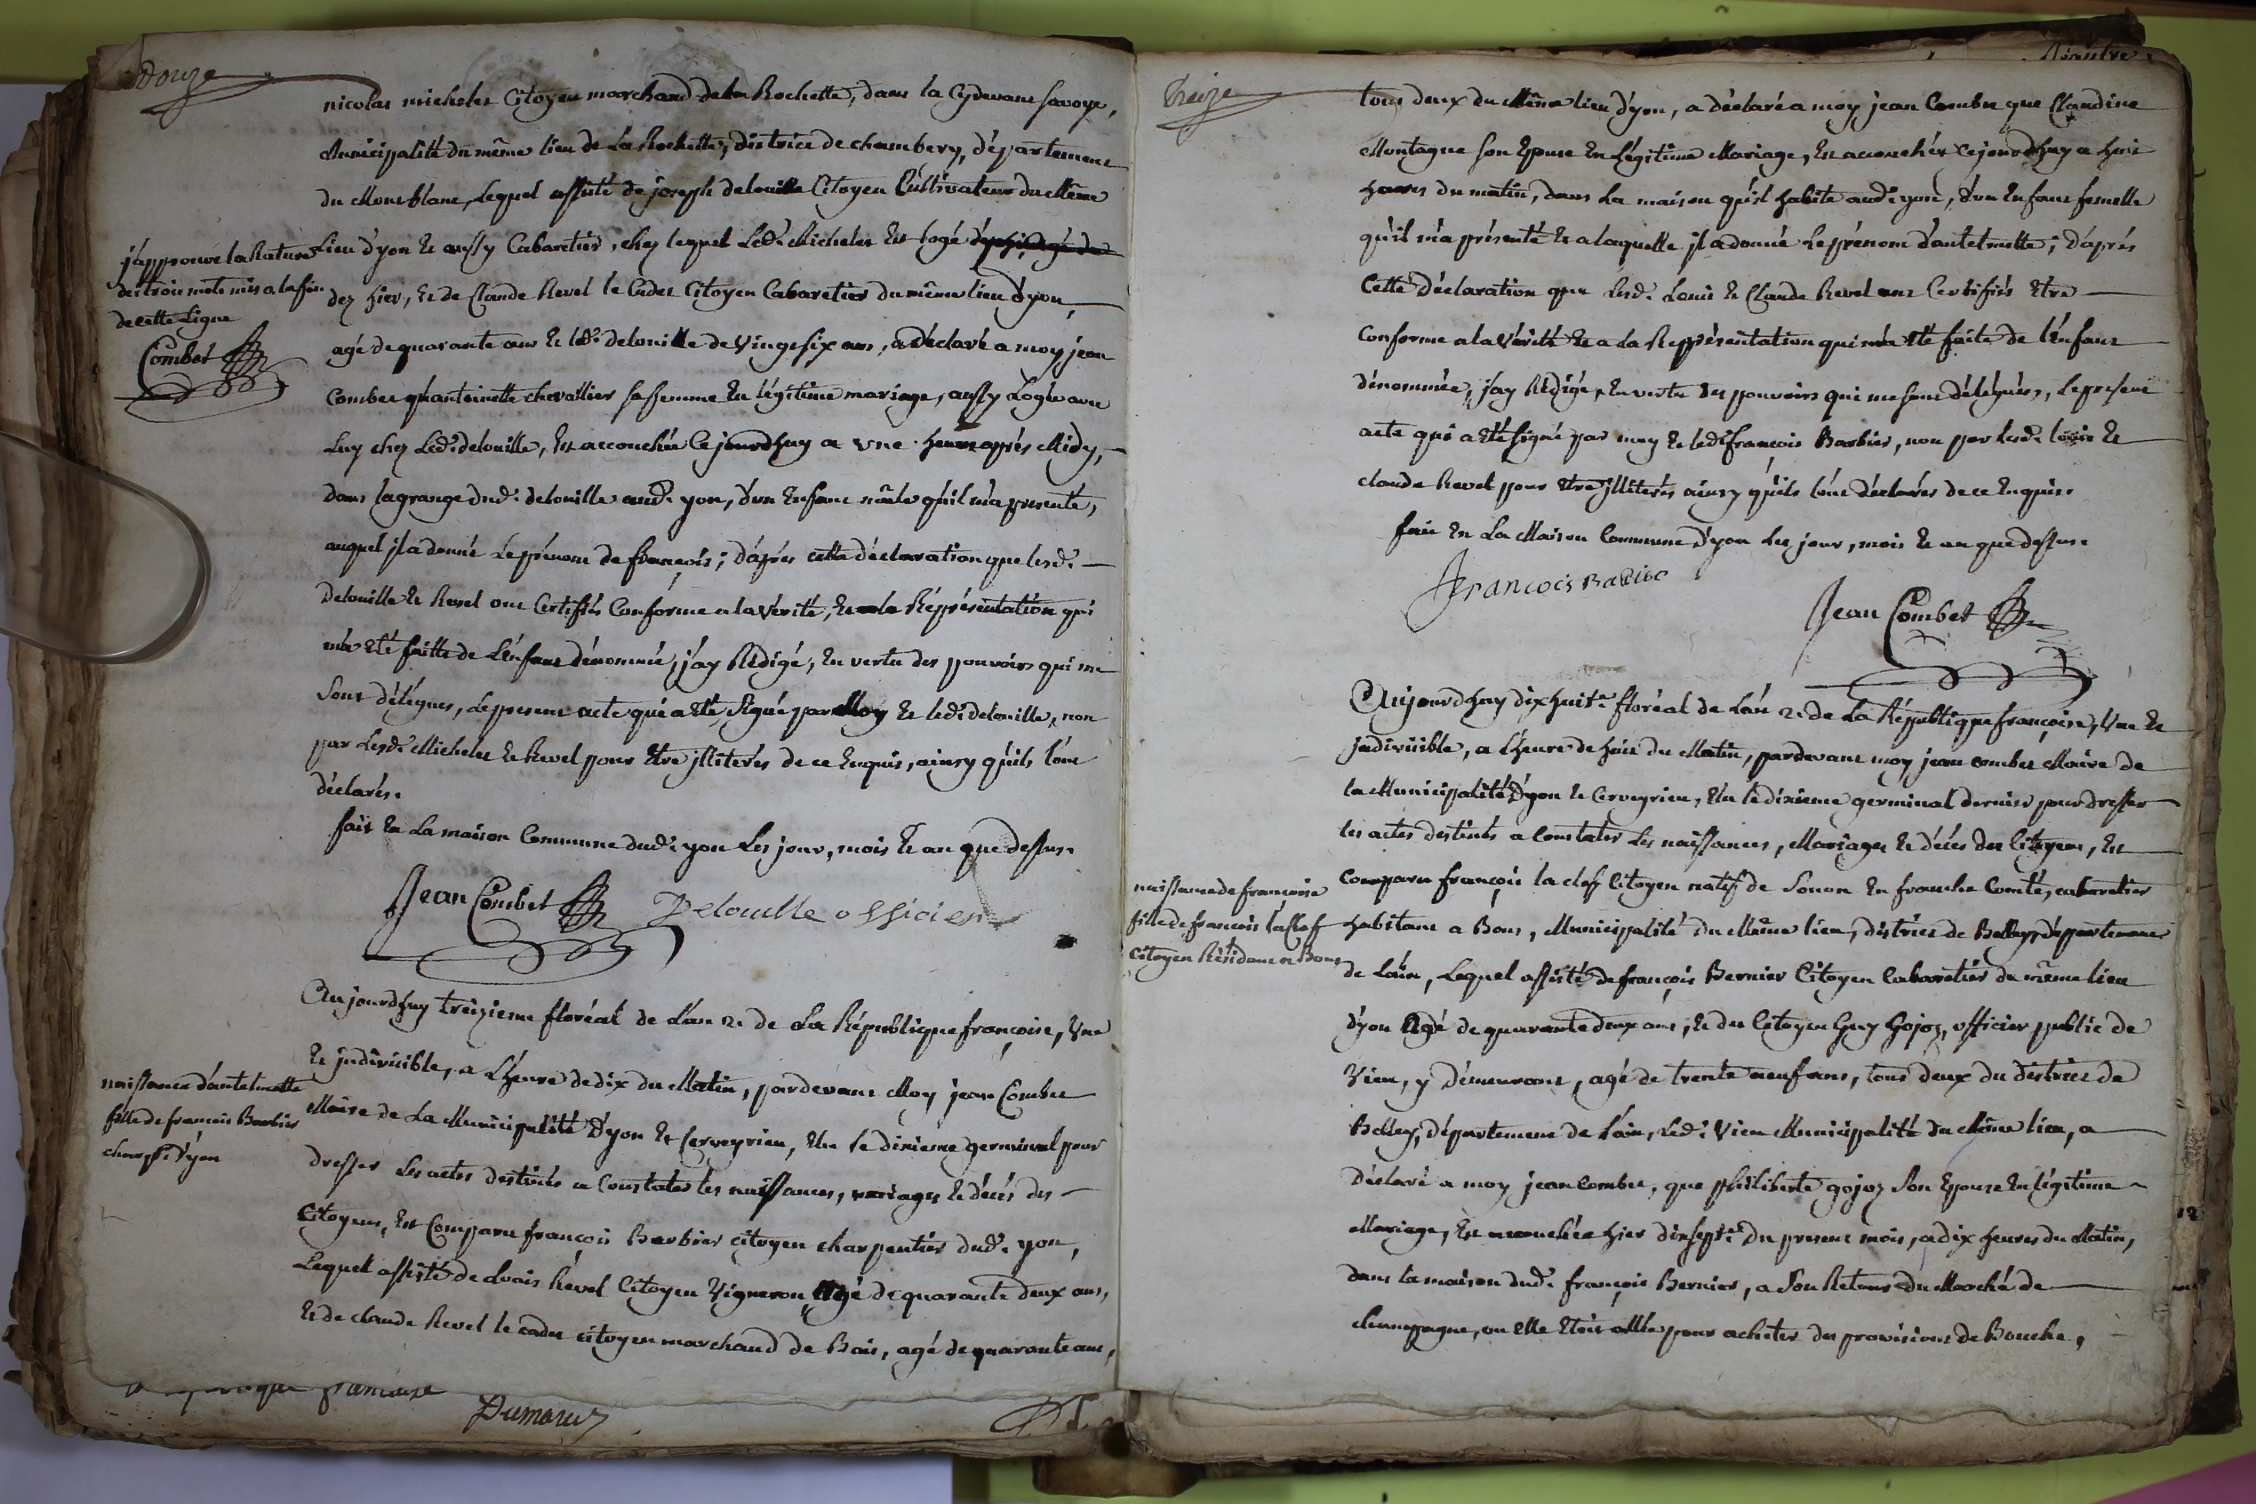 Douze
nicolas micheler Citoyen marchand de la Rochette, dans la Cydevant Savoye,
Municipalité du même lieu de La Rochette, district de chambery, département
du Montblanc, Lequel assisté de joseph delouille Citoyen Cultivateur du Même
Lieu d'yon et aussy Cabaretier, chez lequel Led. Micheler Est logé
j'approuve la Rature
des trois mots mis a la fin
de cette Ligne
Combet
dez hier, et de Claude Revel le Cadet Citoyen Cabaretier du même lieu d'yon,
agé de quarante ans et led. delouille de Vingt six ans, a déclaré a moy jean
Combet qu'antoinette chevallier sa femme En légitime mariage, aussy Logée avec
Luy chez Led. delouille, Est accouchée Ce jourd'huy a Une heure après Midy,
dans la grange dud. delouille aud. yon, d'un Enfant mâle qu'il m'a présenté,
auquel jl a donné Le prénom de françois; d'après cette déclaration que lesd.
Delouille et Revel ont Certifiés Conforme a la Vérité, Et a la Réprésentation qui
m'a Eté faitte de L'enfant dénommé, j'ay Rédigé, En vertu des pouvoirs qui me
Sont délégués, Le present acte qui a Eté Signé par Moy et led. delouille, non
par Lesd. Micheler et Revel pour Etre jlliterés de ce Enquis, ainsy qu'ils l'ont
déclarés.
fait En La maison Commune dud. yon Les jour, mois et an que dessus.
Jean Combet Delouille officier
Aujourd'huy treizieme floréal de L'an 2. de La République françoise, Une
et jndivisible, a L'heure de dix du Matin, pardevant Moy jean Combet
naissance d'antelmette
fille de francois Barbier
charp. d'yon
Maire de La Municipalité d'yon et Cerveyrieu, Elu le dixieme germinal pour
dresser Les actes destinés a Constater les naissances, mariages et décés des
Citoyens, Est Comparu françois Barbier citoyen charpentier dud. yon,
Lequel assisté de Louis Revel Citoyen Vigneron, Agé de quarante deux ans,
et de claude Revel le cadet citoyen marchand de Bois, agé de quarante ans,
Dumaruz
Treize
tous deux du Même lieu d'yon, a déclaré a moy jean Combet que Claudine
Montagne son Epouse En Légitime Mariage, Est accouchée Cejourd'huy a huit
heures du matin, dans La maison qu'il habite aud. yon, d'un Enfant femelle
qu'il m'a présenté et a laquelle jl a donné Le prénom d'antelmette; d'après
Cette déclaration que Lesd. Louis et Claude Revel ont Certifiés Etre
Conforme a la Vérité et a La Représentation qui m'a Eté faite de l'Enfant
dénommée, j'ay Rédigé, En vertu des pouvoirs qui me sont délégués, Le present
acte qui a Eté signé par moy et led. francois Barbier, non par Lesd. Louis et
claude Revel pour Etre jlliterés ainsy qu'ils l'ont déclarés de ce Enquis.
fait En La Maison Commune d'yon Les jour, mois et an que dessus.
francois Babibo
Jean Combet
Aujourd'huy dix huit.e floréal de L'an 2. de La République françoise, Une et
jndivisible, a L'heure de huit du Matin, pardevant moy jean combet Maire de
la Municipalité d'yon et Cerveyrieu, Elu le dixieme germinal dernier pour dresser
les actes destinés a Constater Les naissances, Mariages et décés des Citoyens, Est
Comparu françois la clef Citoyen natif de Sonon En franche Comté, cabaretier
naissance de francoise
fille de francois la Clef
Citoyen Résidant a Bons
habitant a Bons, Municipalité du Même lieu, district de Belley, département
de L'ain, Lequel assisté de françois Bernier Citoyen Cabaretier du même lieu
d'yon Agé de quarante deux ans, et du Citoyen Guy Gojoz, officier public de
Vieu, y démeurant, agé de trente neuf ans, tous deux du district de
Belley, département de l'ain, Led. Vieu Municipalité du Même lieu, a
déclaré a moy jean combet, que philiberte gojoz Son Epouse En légitime
Mariage, Est accouchée hier dix sept.e du present mois, a dix heures du Matin,
dans la maison dud. françois Bernier, a Son Retour du Marché de
champagne, ou Elle Etoit allée pour acheter des provisions de Bouche,